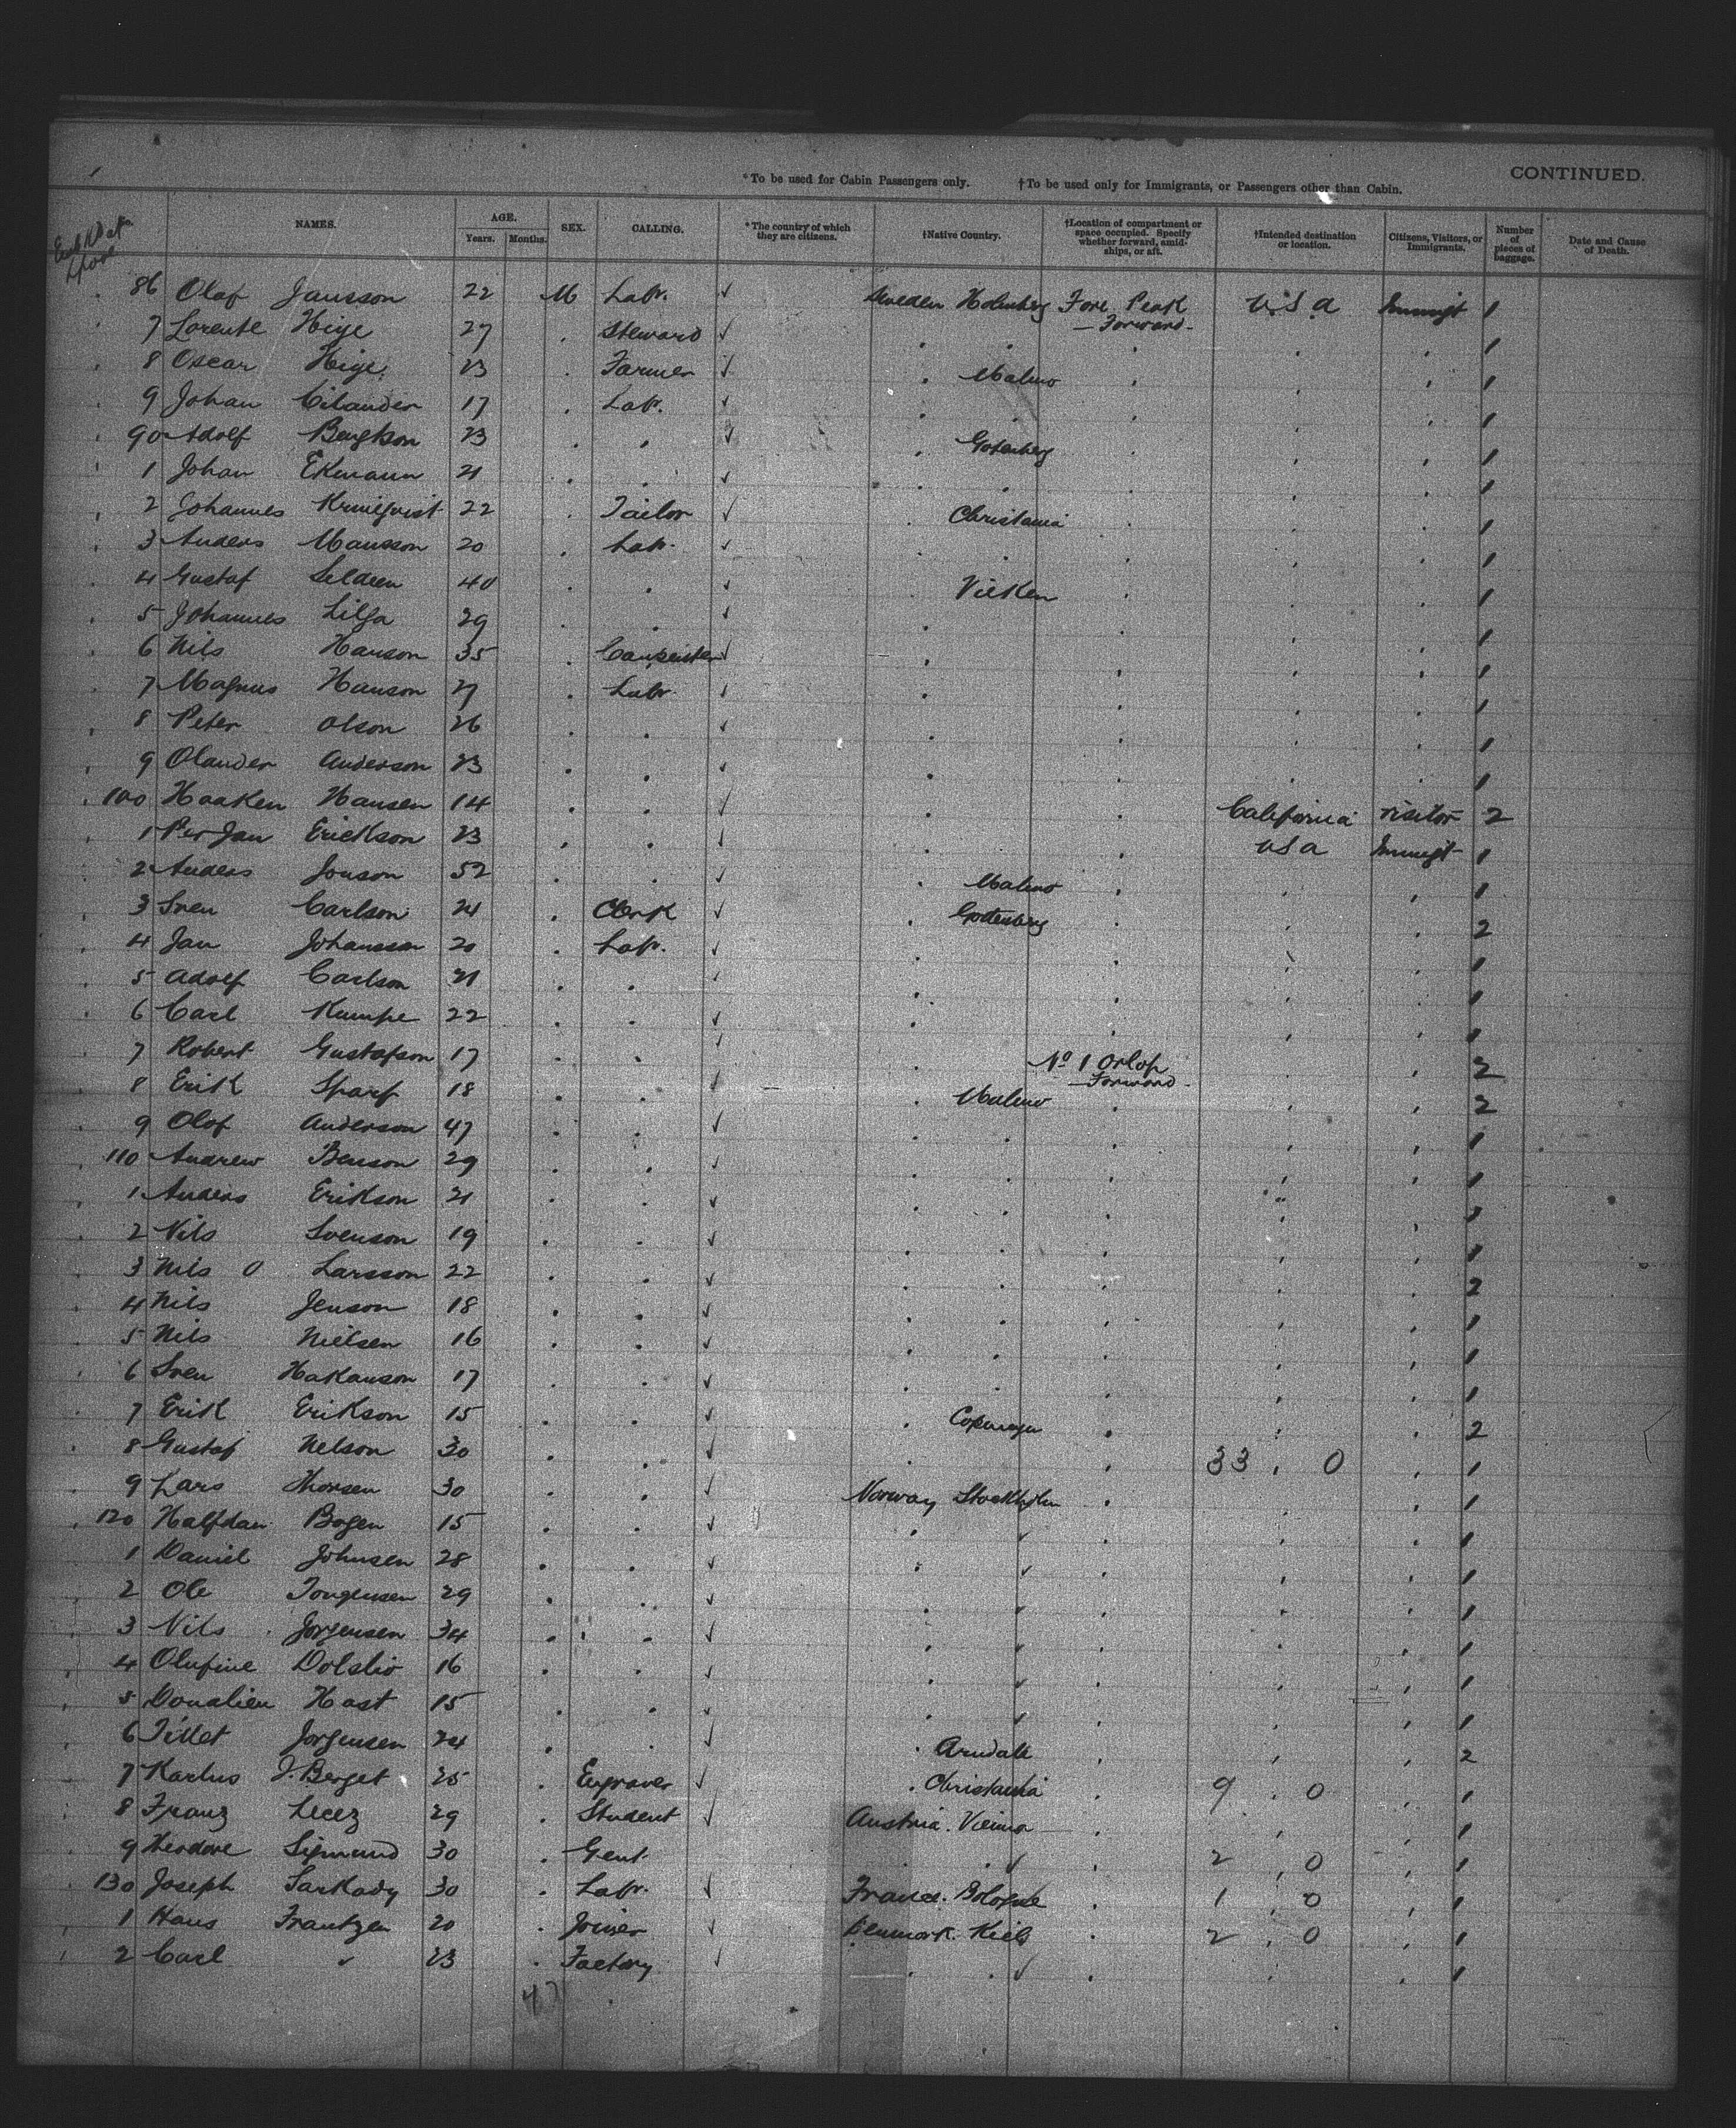 CONTINUED.
*To be used for Cabin Passengers only. †To be used only for Immigrants, or Passengers other than Cabin.
NAMES. AGE. Years. Months. SEX. CALLING. *The country of which they are citizens. †Native Country. †Location of compartment or space occupied. Specify whether forward, amidships, or aft. †Intended destination or location. Citizens, Visitors, or Immigrants. Number of pieces of baggage. Date and Cause of Death.
86 Olof Jansson 22 M Labr. ✓ Sweden Fore Peak U.S.A Immigt 1
— Forward -
7 Hige 27 Steward ✓ 1
8 Oscar Hige 23 Farmer ✓ Malmo 1
9 Johan Cilander 17 Labr. ✓ 1
90 Adolf Bengtson 23 ✓ Gotenberg 1
1 Johan Ekmann 21 ✓ 1
2 Johannes 22 Tailor ✓ Christania 1
3 Anders Mansson 20 Labr. ✓ 1
4 Gustaf Seldeen 40 ✓ Vicken 1
5 Johannes Lilja 29 ✓ 1
6 Nils Hanson 35 Carpenter ✓ 1
7 Magnus Hanson 27 Labr. ✓ 1
8 Peter Olson 26 ✓ 1
9 Olander Anderson 23 ✓ 1
100 Haaken Hansen 14 ✓ California visitor 2
1 Per Jan Erickson 23 ✓ USA Immigt 1
2 Anders Jonson 52 ✓ Malmo 1
3 Sven Carlson 24 Clerk ✓ Gotenberg 2
4 Jan Johansson 20 Labr. ✓ 1
5 Adolf Carlson 21 ✓ 1
6 Carl Kumpe 22 ✓ 1
7 Robert Gustafson 17 ✓ No 1 Orlop 2
— Forward -
8 Erik Sparf 18 ✓ Malmo 2
9 Olof Anderson 47 ✓ 1
110 Andrew Benson 29 ✓ 1
1 Anders Erikson 21 ✓ 1
2 Nils Svenson 19 ✓ 1
3 Nils O Larsson 22 ✓ 2
4 Nils Jenson 18 ✓ 1
5 Nils Nielsen 16 ✓ 1
6 Sven Hakanson 17 ✓ 1
7 Erik Erikson 15 ✓ 2
8 Gustaf Nelson 30 ✓ 33 0 1
9 Lars Thorsen 30 ✓ Norway Stockholm 1
120 Halfdan Bogen 15 ✓ 1
1 Daniel Johnsen 28 ✓ 1
2 Ole 29 ✓ 1
3 Nils Jorgensen 34 ✓ 1
4 Olufine 16 ✓ 1
5 Hast 15 ✓ 1
6 Jorgensen 24 ✓ Arndale 2
7 Karlus J. Berget 25 Engraver ✓ Christania 9 0 1
8 Franz 29 Student ✓ Austria. Vienna 1
9 Theodore Sigmund 30 Gent. ✓ 2 0 1
130 Joseph Sarkady 30 Labr. ✓ France. Bologne 1 0 1
1 Hans Frantzen 20 Joiner ✓ Denmark. Kiel 2 0 1
2 Carl " 23 Factory ✓ 1